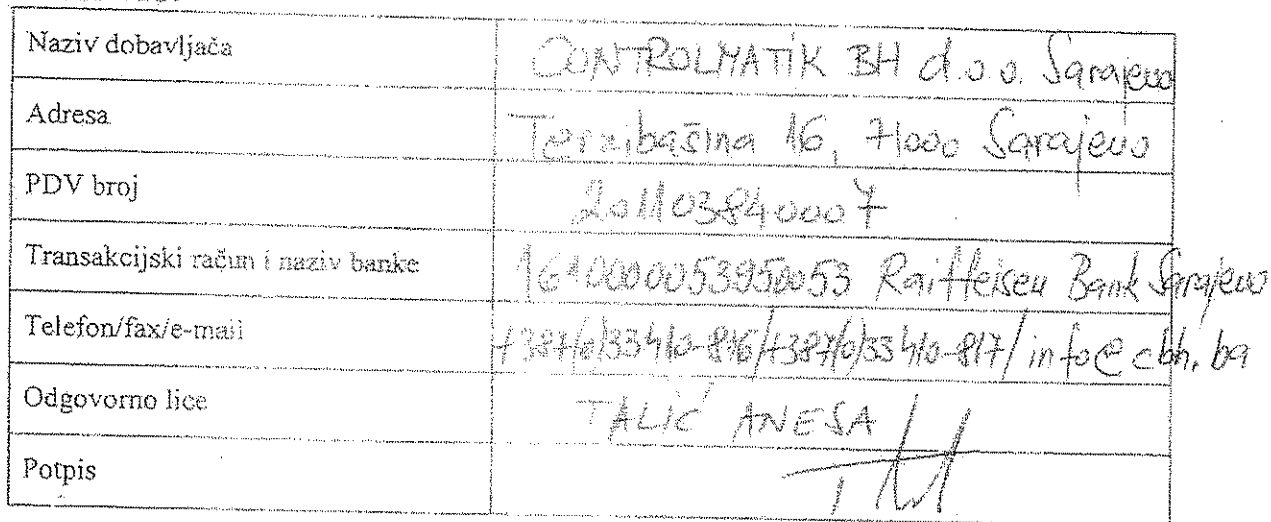 Naziv dobavljača CONTROLMATIK BH d.o.o. Sarajevo
Adresa Terzibašina 16, 71000 Sarajevo
PDV broj 201103840007
Transakcijski račun i naziv banke 1610000053950053 Raiffeisen Bank Sarajevo
Telefon/fax/e-mail +387/0/33410-816/+387/0/33410-817/info@cbh.ba
Odgovorno lice TALIĆ ANESA
Potpis